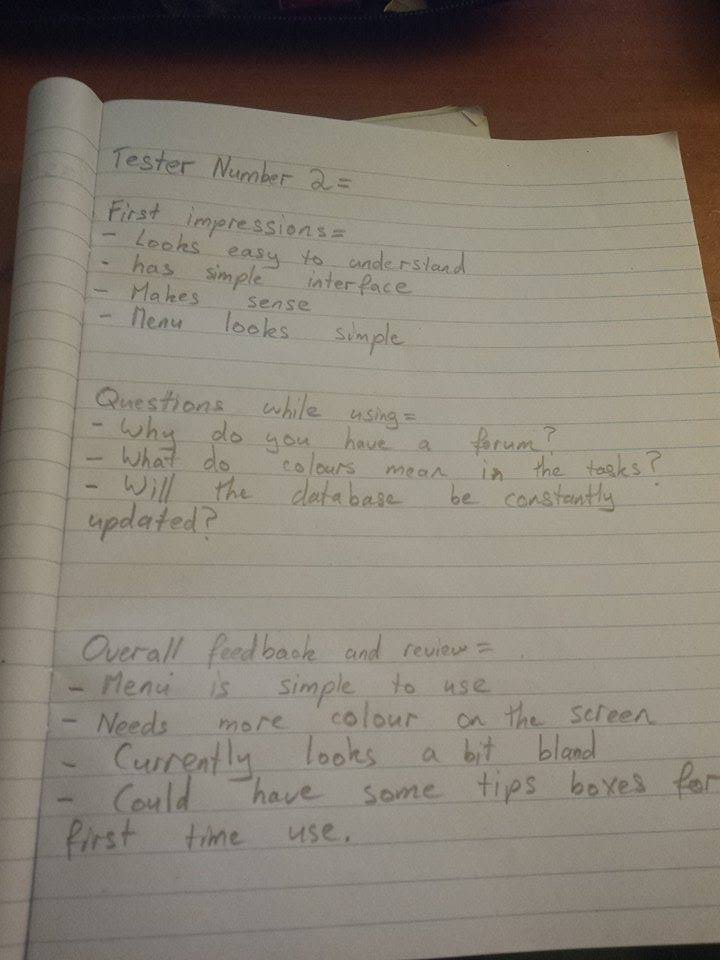 Tester Number 2=
First impressions=
- Looks easy to understand
- has simple interface
- Makes sense
- Menu looks simple
Questions while using=
- Why do you have a forum?
- What do colours mean in the tasks?
- Will the database be constantly
updated?
Overall feedback and review=
- Menu is simple to use
- Needs more colour on the screen
- Currently looks a bit bland
- Could have some tips boxes for
first time use.